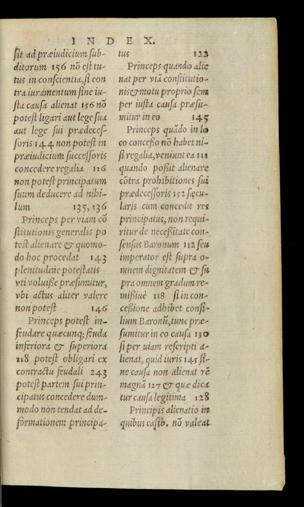 INDEX.
sit ad præiudicium sub-
ditorum 156 nō est tu-
tus in conscientia, si con
tra iuramentum sine iu-
sta causa alienat 156 nō
potest ligari aut lege sua
aut lege sui prædeces-
soris 144 non potest in
præiudicium successoris
concedere regalia 116
non potest principatum
suum deducere ad nihi-
lum 135, 136
Princeps per viam cō
stitutionis generalis po
test alienare & quomo-
do hoc procedat 143
plenitudine potestatis
vti voluisse præsumitur,
vbi actus aliter valere
non potest 146
Princeps potest in-
feudare quæcunq; feuda
inferiora & superiora
118 potest obligari ex
contractu feudali 243
potest partem sui prin-
cipatus concedere dum-
modo non tendat ad de-
formationem principa-
tus 122
Princeps quando alie
nat per viā constitutio-
nis & motu proprio sem
per iusta causa præsu-
mitur in eo 145
Princeps quādo in lo
co concesso nō habet ni-
si regalia, veniunt ea 111
quando possit alienare
cōtra prohibitiones sui
prædecessoris 152 sæcu-
laris cum concedit res
principatus, non requi-
ritur de necessitate con-
sensus Baronum 112 seu
imperator est supra o-
mnem dignitatem & su
pra omnem gradum re-
missiuè 118 si in con-
cessione adhibet consi-
lium Baronū, tunc præ-
sumitur in eo causa 130
si per viam rescripti a-
lienat, quid iuris 145 si-
ne causa non alienat rē
magnā 127 & quæ dica
tur causa legitima 128
Principis alienatio in
quibus casib. nō valeat